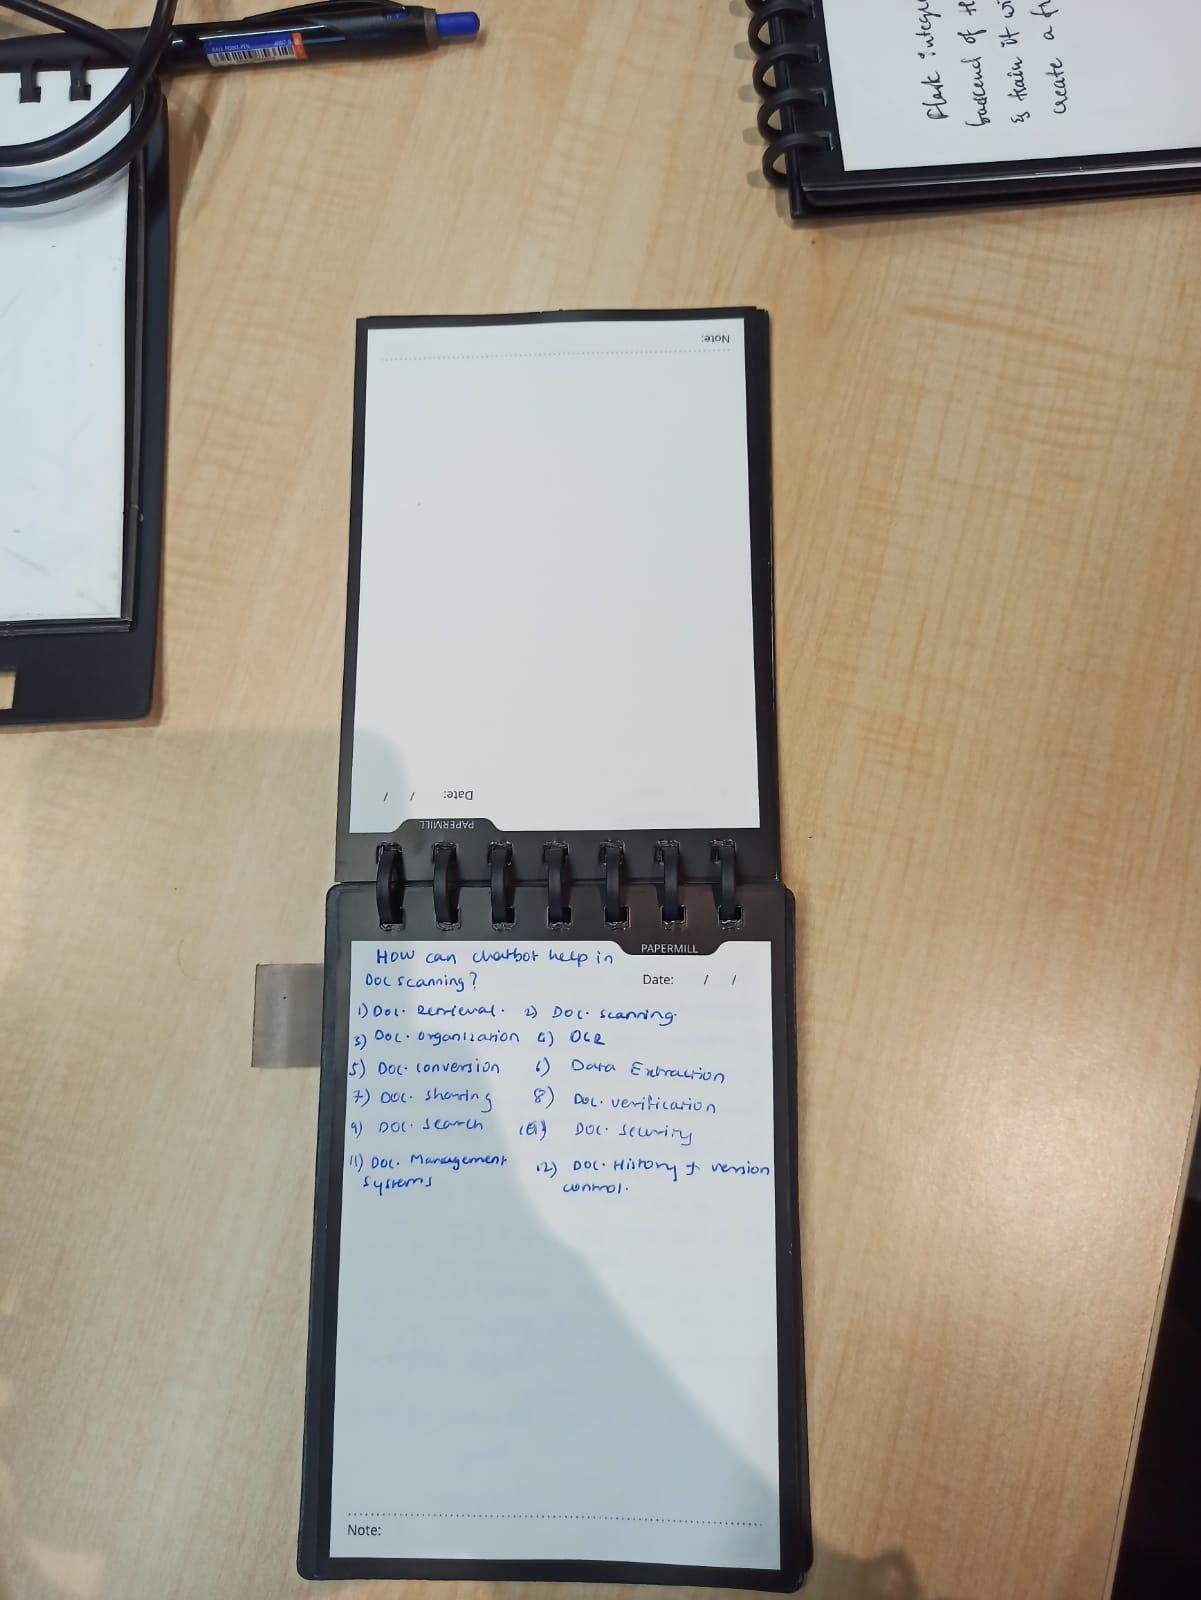 Flask integ
backend of th
& train it wi
create a fr
Note:
Date: / /
PAPERMILL
PAPERMILL
How can chatbot help in
Doc scanning?
Date: / /
1) Doc. Retrieval. 2) Doc. scanning.
3) Doc. organization 4) OCR
5) Doc. conversion 6) Data Extraction
7) Doc. sharing 8) Doc. verification
9) Doc. search 10) Doc. security
11) Doc. Management 12) Doc. History & version
systems control.
Note: